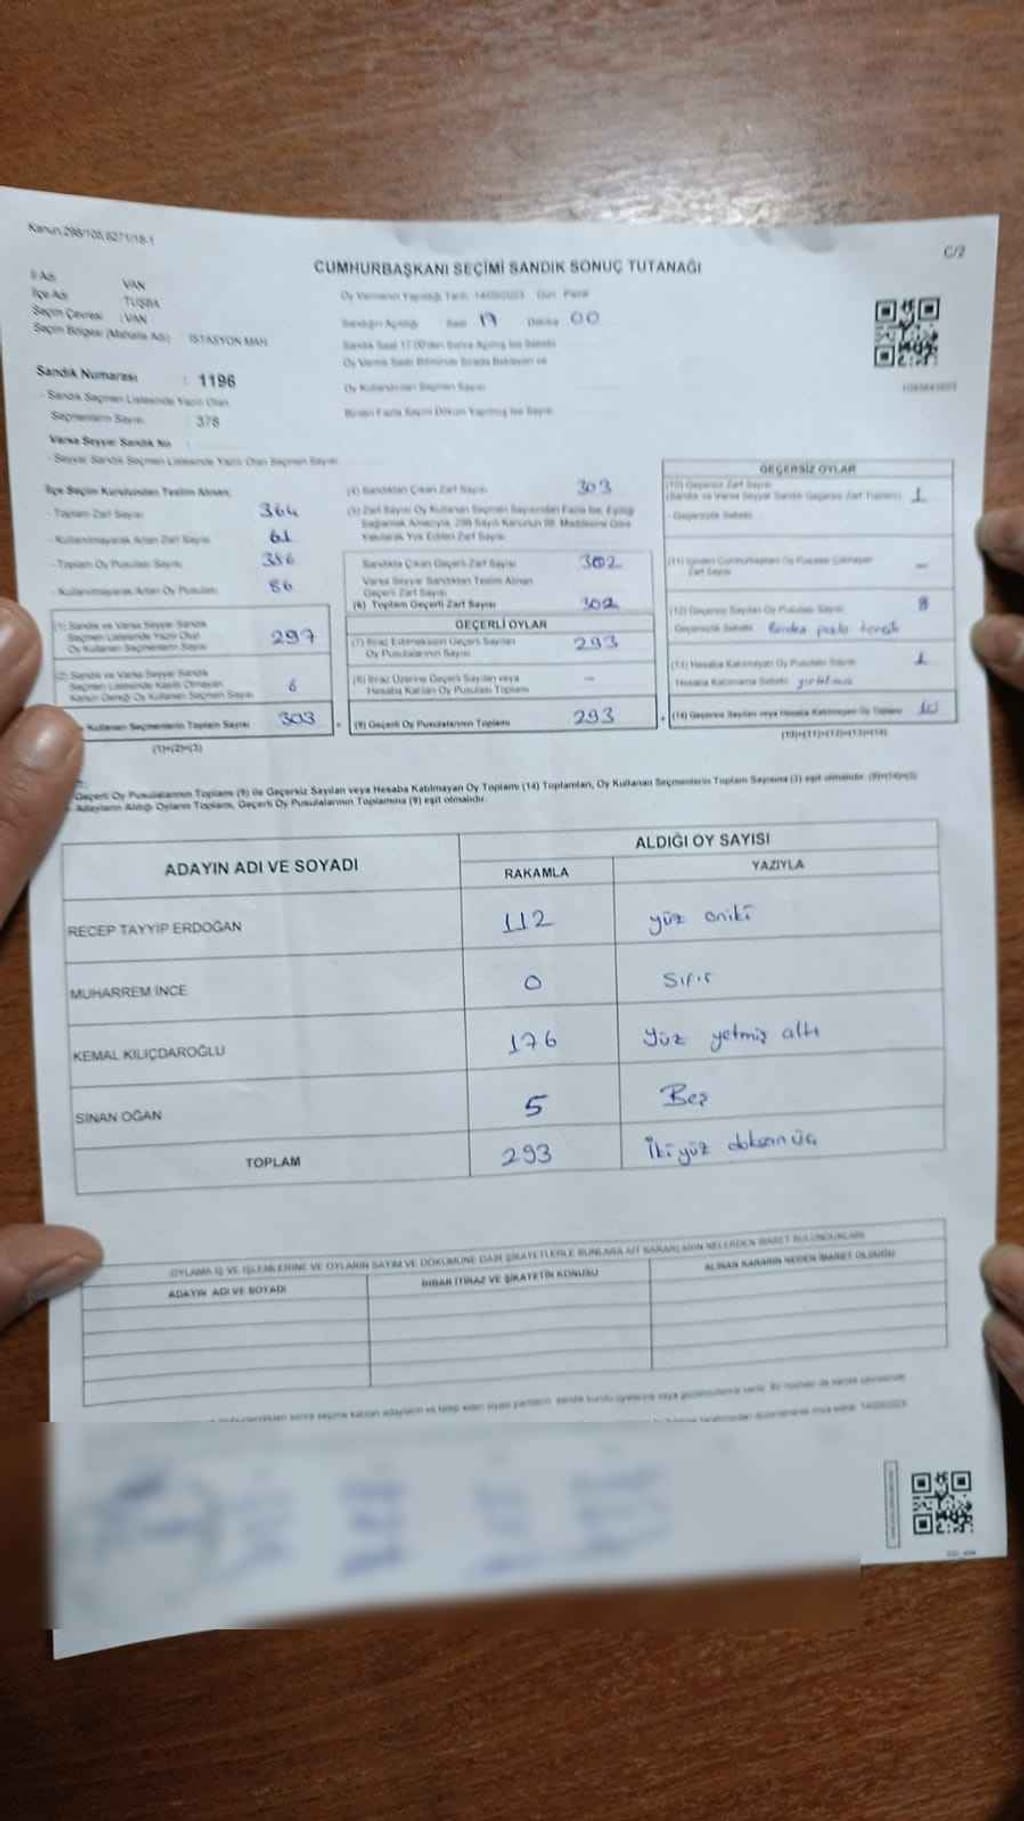 Kanun:298/105,6271/18-1
C/2
CUMHURBAŞKANI SEÇİMİ SANDIK SONUÇ TUTANAĞI
İl Adı : VAN
İlçe Adı : TUŞBA
Seçim Çevresi : VAN
Seçim Bölgesi (Mahalle Adı) : İSTASYON MAH.
Oy Vermenin Yapıldığı Tarih: 14/05/2023 Gün: Pazar
Sandığın Açıldığı Saat 17 Dakika 00
Sandık Saat 17.00'den Sonra Açılmış İse Sebebi
Oy Kullandırılan Seçmen Sayısı
Birden Fazla Sayım Döküm Yapılmış İse Sayısı
Sandık Numarası : 1196
- Sandık Seçmen Listesinde Yazılı Olan
Seçmenlerin Sayısı : 378
Varsa Seyyar Sandık No :
- Seyyar Sandık Seçmen Listesinde Yazılı Olan Seçmen Sayısı
İlçe Seçim Kurulundan Teslim Alınan;
- Toplam Zarf Sayısı 364
- Kullanılmayarak Artan Zarf Sayısı 61
- Toplam Oy Pusulası Sayısı
- Kullanılmayarak Artan Oy Pusulası 86
(1) Sandık ve Varsa Seyyar Sandık
Seçmen Listesinde Yazılı Olup
Oy Kullanan Seçmenlerin Sayısı 297
(2) Sandık ve Varsa Seyyar Sandık
Seçmen Listesinde Kayıtlı Olmayan,
Kanun Gereği Oy Kullanan Seçmen Sayısı 6
Kullanan Seçmenlerin Toplam Sayısı 303
(1)+(2)=(3)
(4) Sandıktan Çıkan Zarf Sayısı 303
Sandıkta Çıkan Geçerli Zarf Sayısı 302
Varsa Seyyar Sandıktan Teslim Alınan
Geçerli Zarf Sayısı
(6) Toplam Geçerli Zarf Sayısı 302
GEÇERLİ OYLAR
(7) İtiraz Edilmeksizin Geçerli Sayılan
Oy Pusulalarının Sayısı 293
(8) İtiraz Üzerine Geçerli Sayılan veya
Hesaba Katılan Oy Pusulası Toplamı –
(9) Geçerli Oy Pusulalarının Toplamı 293
GEÇERSİZ OYLAR
(10) Geçersiz Zarf Sayısı
(Sandık ve Varsa Seyyar Sandık Geçersiz Zarf Toplamı) 1
- Geçersizlik Sebebi
Zarf Sayısı –
(12) Geçersiz Sayılan Oy Pusulası Sayısı 8
Geçersizlik Sebebi
(13) Hesaba Katılmayan Oy Pusulası Sayısı 1
Hesaba Katılmama Sebebi
(14) Geçersiz Sayılan veya Hesaba Katılmayan Oy Toplamı 10
(10)+(11)+(12)+(13)=(14)
Geçerli Oy Pusulalarının Toplamı (9) ile Geçersiz Sayılan veya Hesaba Katılmayan Oy Toplamı (14) Toplamları, Oy Kullanan Seçmenlerin Toplam Sayısına (3) eşit olmalıdır. (9)+(14)=(3)
Adayların Aldığı Oyların Toplamı, Geçerli Oy Pusulalarının Toplamına (9) eşit olmalıdır.
ADAYIN ADI VE SOYADI
ALDIĞI OY SAYISI
RAKAMLA YAZIYLA
RECEP TAYYİP ERDOĞAN 112 yüz oniki
MUHARREM İNCE 0 Sıfır
KEMAL KILIÇDAROĞLU 176 Yüz yetmiş altı
SİNAN OĞAN 5 Beş
TOPLAM 293 İki yüz doksan üç
OYLAMA İŞ VE İŞLEMLERİNE VE OYLARIN SAYIM VE DÖKÜMÜNE DAİR ŞİKAYETLERLE BUNLARA AİT KARARLARIN NELERDEN İBARET BULUNDUKLARI
ADAYIN ADI VE SOYADI
İHBAR İTİRAZ VE ŞİKAYETİN KONUSU
ALINAN KARARIN NEDEN İBARET OLDUĞU